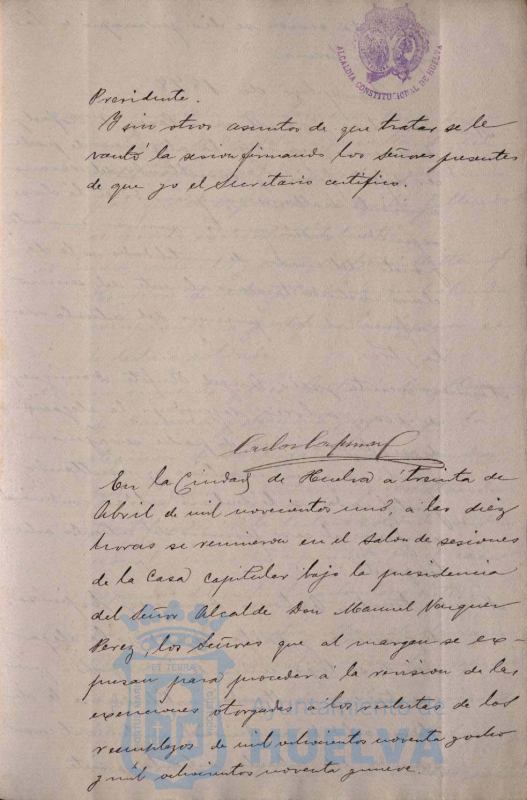 ALCALDIA CONSTITUCIONAL DE HUELVA
Presidente.
Y sin otros asuntos de que tratar se le
vantó la sesion firmando los Señores presentes
de que yo el Secretario certifico.
Carlos
En la Ciudad de Huelva á treinta de
Abril de mil novecientos uno, á las diez
horas se reunieron en el salon de sesiones
de la Casa capitular bajo la presidencia
del Señor Alcalde Don Manuel Vazquez
Perez, los Señores que al margen se ex-
presan para proceder á la revision de las
exenciones otorgadas á los reclutas de los
reemplazos de mil ochocientos noventa y ocho
y mil ochocientos noventa y nueve.
Ayuntamiento de
HUELVA